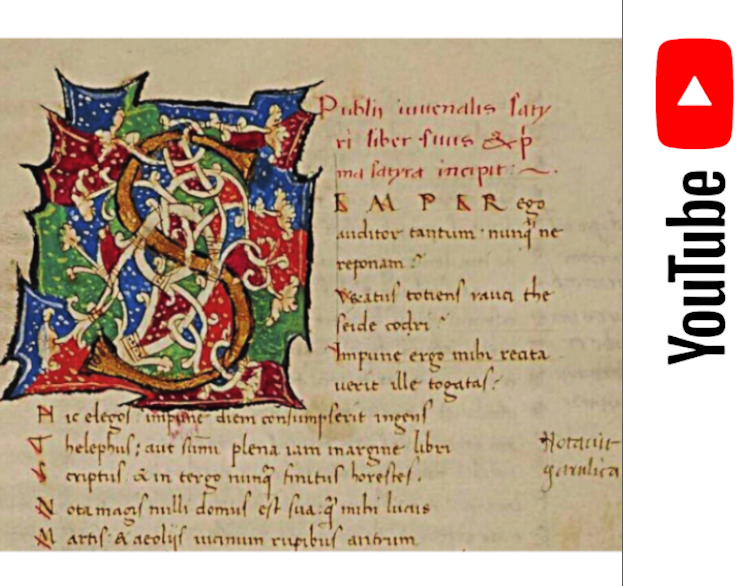 Publii iuuenalis saty
ri liber &p
ma satyra incipit:
S
EMPER ego
auditor tantum. nunq̃ ne
reponam?
Vexatus totiens rauci the
seide codri
Impune ergo mihi recita
uerit ille togatas?
Hic elegos? impune diem consumpserit ingens
Thelephus; aut sũmi plena iam margine libri
Scriptus & in tergo nunq̃ finitus horestes.
Nota magis nulli domus est sua: q̃ mihi lucus
Martis: & aeolijs uicinum rupibus antrum
YouTube